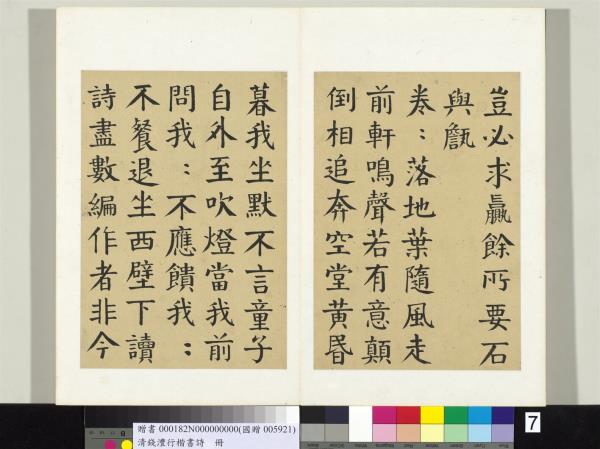 豈必求贏餘所要石
與甔
卷：落地葉隨風走
前軒鳴聲若有意顛
倒相追奔空堂黃昬
暮我坐默不言童子
自外至吹燈當我前
問我：不應饋我：
不餐退坐西壁下讀
詩盡數編作者非今
7
贈書 000182N000000000(國贈 005921)
清錢灃行楷書詩 冊